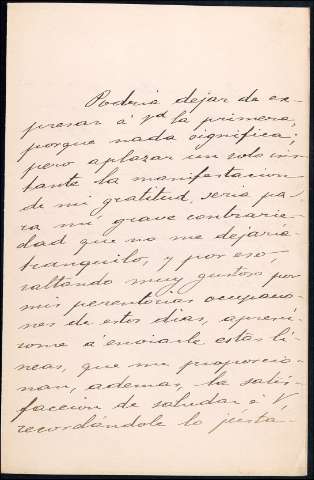 Podria dejar de ex-
presar á Vd la primera,
porque nada significa;
pero aplazar un solo ins-
tante la manifestacion
de mi gratitud, seria pa-
ra mí grave contrarie-
dad que no me dejaria
tranquilo, y por eso,
saltando muy gustoso por
mis perentorias ocupacio-
nes de estos dias, apresú-
rome a enviarle estas lí-
neas, que me proporcio-
nan, ademas, la satis-
faccion de saludar á V.
recordándole lo